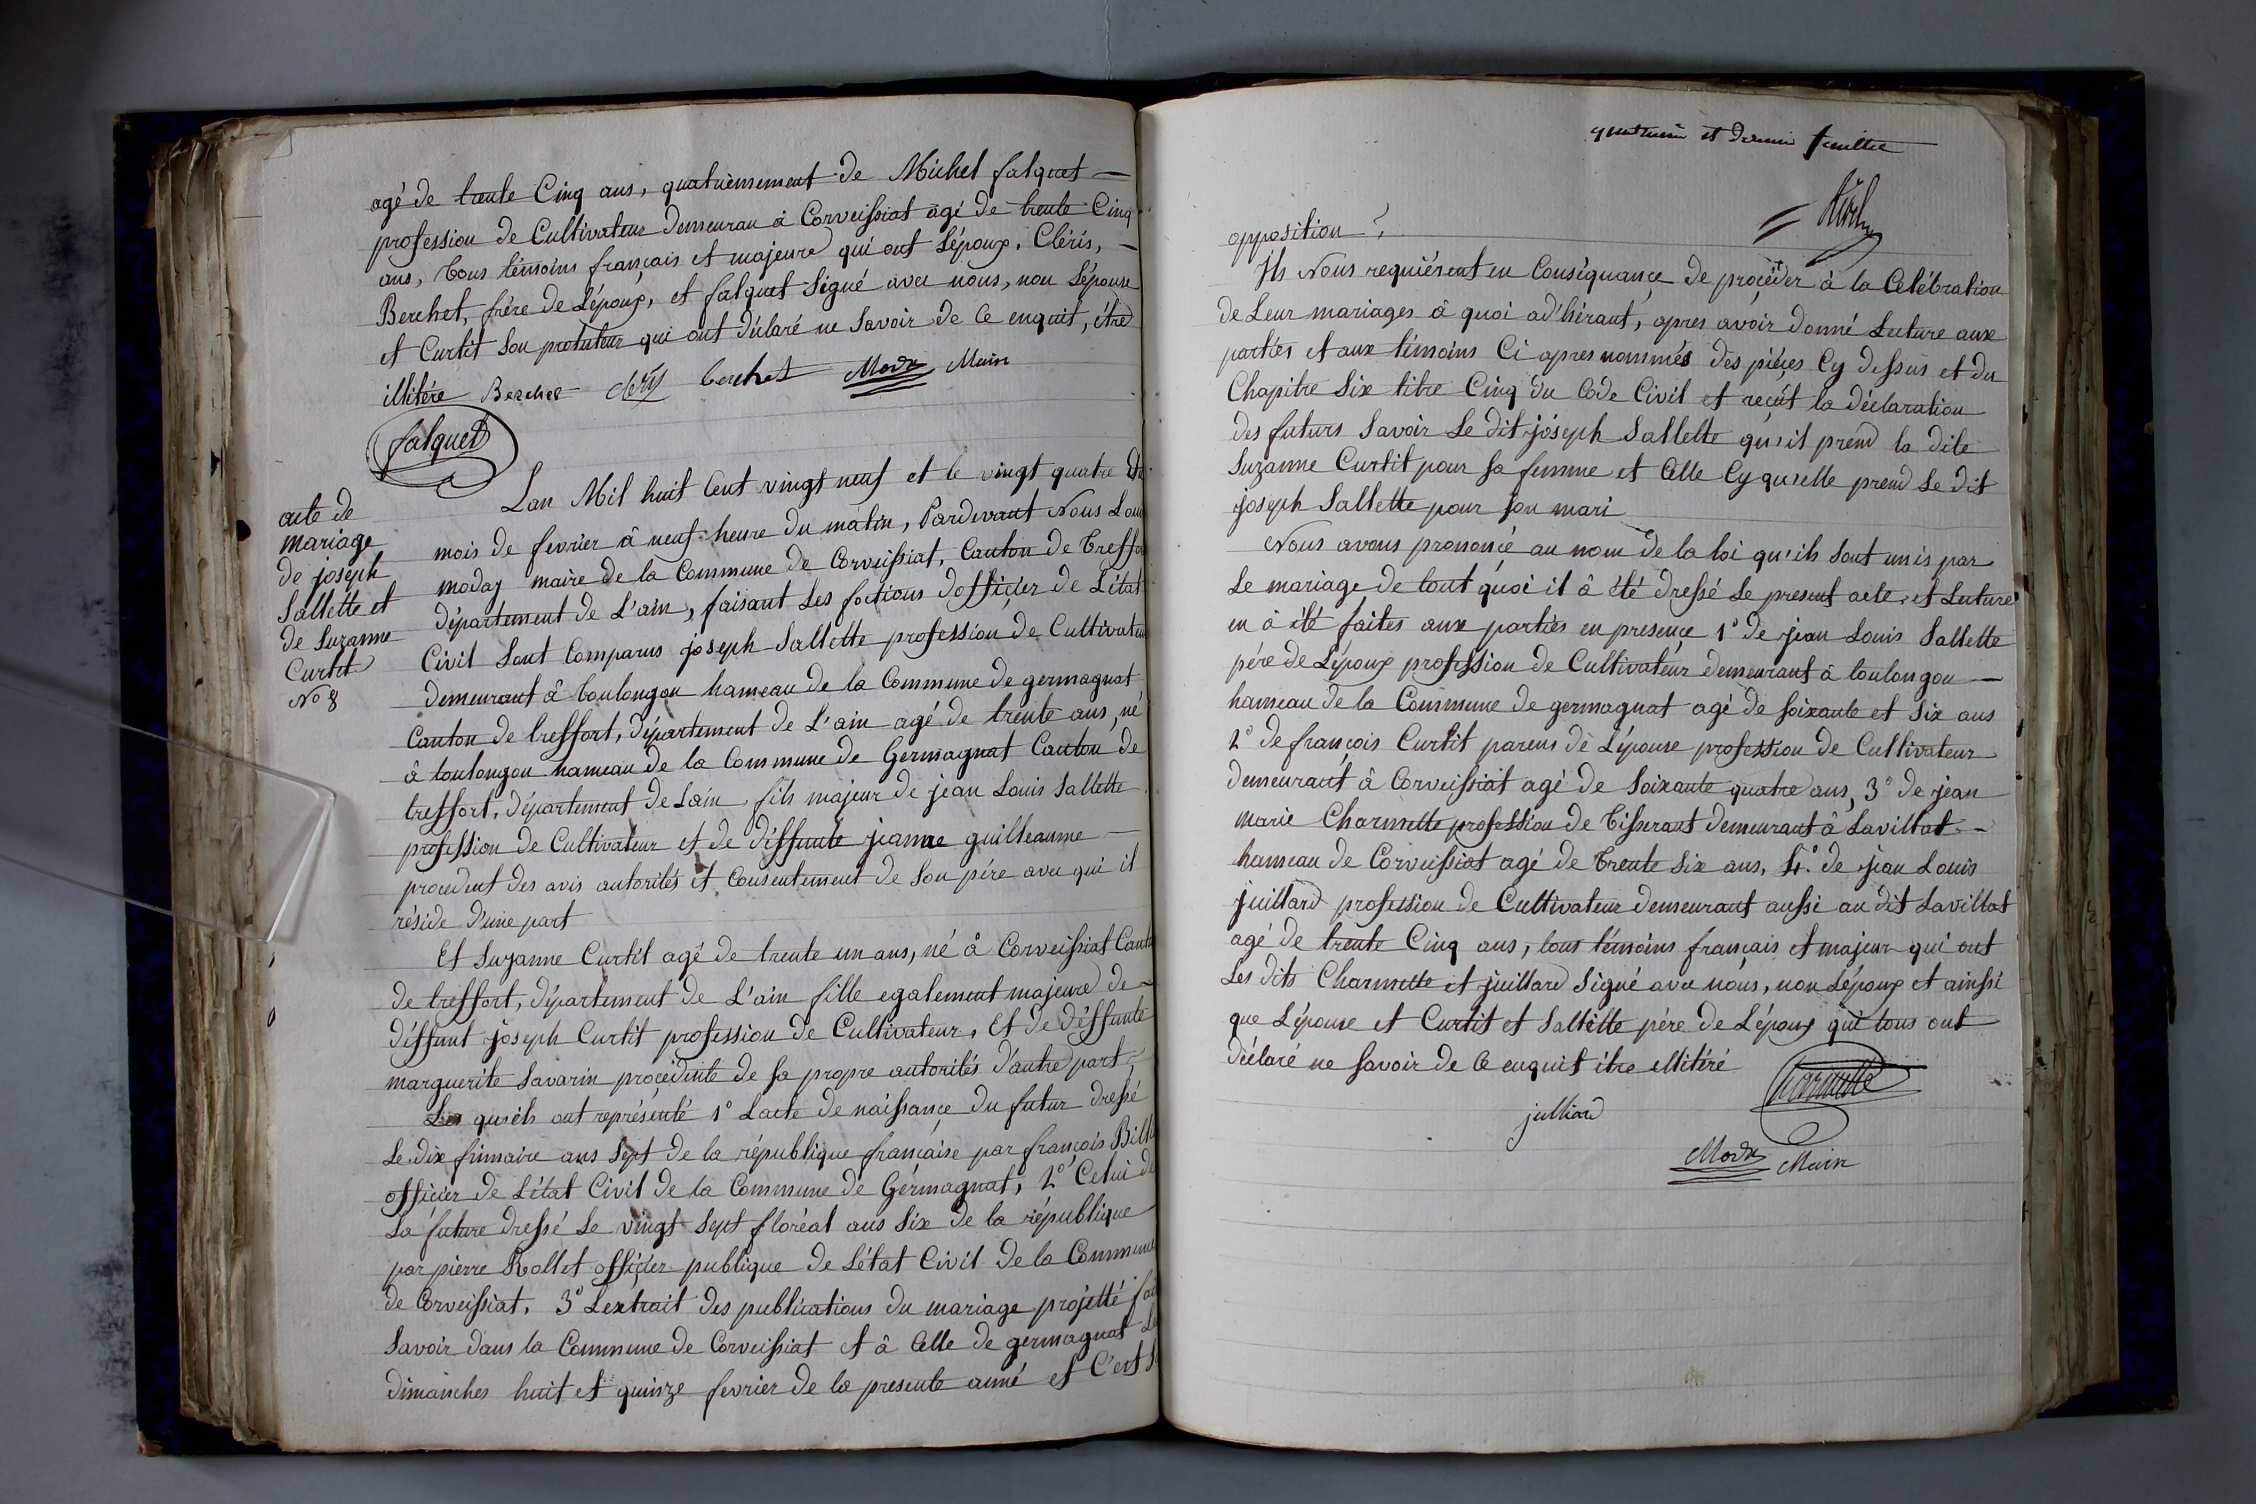 agé de trente Cinq ans, quatrièmement de Michel falquet
profession de Cultivateur demeuran à Corveissiat agé de trente Cinq
ans, tous témoins français et majeure qui ont L'époux, Cléris,
Berchet, frére de L'époux, et falquet Signé avec nous, non L'épouse
et Curtit Son protuteur qui ont déclaré ne Savoir de Ce enquit, être
illitére Berchet berchet Moda Maire
falquet
acte de
mariage
de joseph
Sallette et
de Suzanne
Curtit
No 8
Lan Mil huit Cent vingt neuf et le vingt quatre du
mois de fevrier â neuf heure du matin, Pardevant Nous Loui
moday maire de la Commune de Corveissiat, Canton de Treffor
département de L'ain, faisant Les foctions dofficier de L'état
Civil Sont Comparus joseph Sallette profession de Cultivateur
demeurant â toulongon hameau de la Commune de germagnat
Canton de treffort, département de L'ain agé de trente ans, né
â toulongon hameau de la Commune de Germagnat Canton de
treffort, département de Lain fils majeur de jean Louis Sallette
profession de Cultivateur et de déffunte jeanne guilleaume
procedent des avis autorités et Consentement de Son pére avec qui il
réside d'une part
Et Suzanne Curtit agé de trente un ans, né â Corveissiat Cant
de treffort, département de L'ain fille egalement majeure de
déffunt joseph Curtit profession de Cultivateur, Et de déffunte
marguerite Savarin procedente de Sa propre autorités d'autre part,
Les quéls ont représenté 1° Lacte de naissance du futur dressé
Le dix frimaire ans Sept de la république française par françois Bill
officier de L'état Civil de la Commune de Germagnat, 2° Celui de
La future dressé Le vingt Sept floréal ans Six de la république
par piérre Rollet officier publique de L'état Civil de la Commune
de Corveissiat, 3° Lextrait des publications du mariage projetté fai
Savoir dans la Commune de Corveissiat et â Celle de germagnat Le
dimanches huit et quinze fevrier de la presente anné et C'est S
quatrieme et dernier feuillet
opposition,
Ils Nous requiérent en Conséquance de procéder à la Celébration
de Leur mariages â quoi ad'hérant, apres avoir donné Lecture aux
partiés et aux témoins Ci apres nommés des piéçes Cy dessus et du
Chapitre Six titre Cinq du Code Civil et reçût la déclaration
des futurs Savoir Le dit joseph Sallette qu'il prend la dite
Suzanne Curtit pour Sa femme et Celle Cy qu'elle prend Le dit
joseph Sallette pour Son mari
Nous avons prononcé au nom de la loi qu'ils Sont unis par
Le mariage de tout quoi il â été dressé Le present acte, et Lecture
en â été faites aux partiés en presençe 1° de jean Louis Sallette
pére de L'époux profession de Cultivateur demeurant â toulongon
hameau de la Commune de germagnat agé de Soixante et Six ans
2° de françois Curtit parens de L'épouse profession de Cultivateur
demeurant â Corveissiat agé de Soixante quatre ans, 3° de jean
marie Charmette profession de Tisserant demeurant â Lavillat
hameau de Corveissiat agé de Trente Six ans, 4° de jean Louis
juillard profession de Cultivateur demeurant aussi au dit Lavillat
agé de trente Cinq ans, tous témoins français et majeur qui ont
Les dits Charmette et juillard Signé avec nous, non L'époux et ainssi
que L'épouse et Curtit et Sallette pére de L'époux qui tous ont
déclaré ne Savoir de Ce enquit être illitéré
Charmette
julliard
Moda Maire